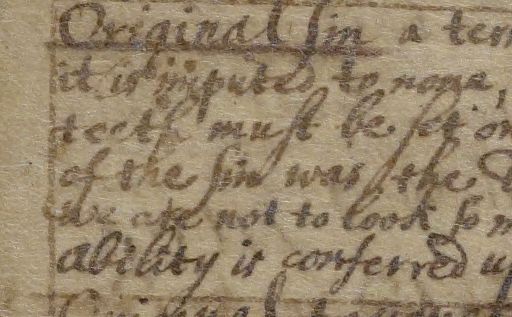 Original Sin a ter
it is imputed to none,
teeth must be set on
of the sin was the
we are not to look so m
ability is conferred u